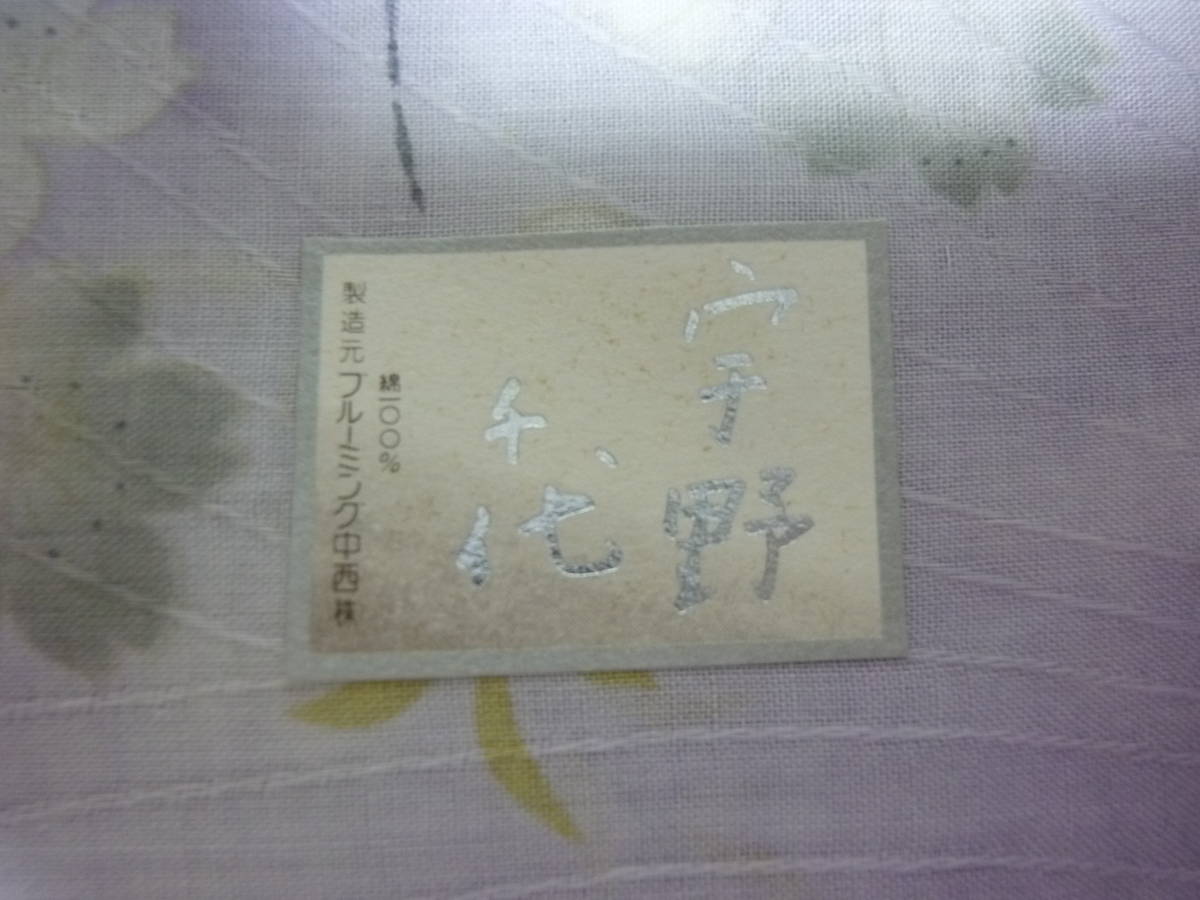 宇野
千代
綿一〇〇%
製造元ブルーミング中西㈱